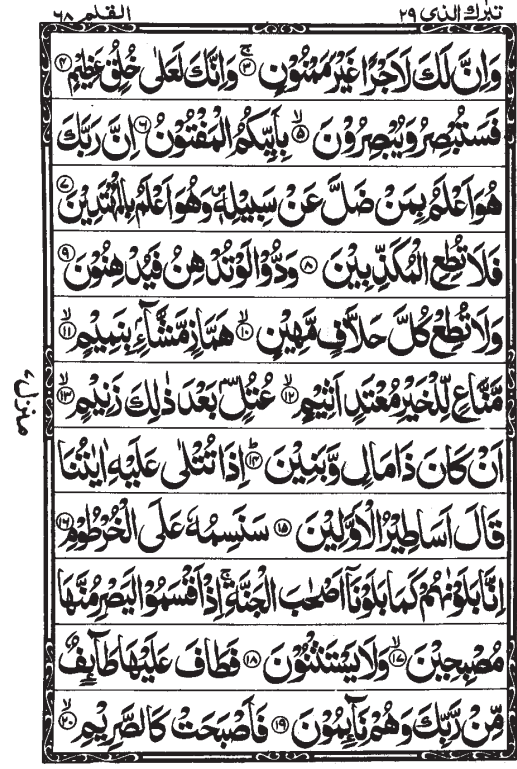 تبٰرك الذی ۲۹
القلم ۶۸
وَاِنَّ لَكَ لَاَجْرًا غَيْرَ مَمْنُوْنٍ ۚ‏﴿۳﴾ وَاِنَّكَ لَعَلٰى خُلُقٍ عَظِيْمٍ ﴿۴﴾
فَسَتُبْصِرُ وَيُبْصِرُوْنَ ۙ‏﴿۵﴾ بِاَيِّٮكُمُ الْمَفْتُوْنُ ﴿۶﴾ اِنَّ رَبَّكَ
هُوَ اَعْلَمُ بِمَنْ ضَلَّ عَنْ سَبِيْلِهٖ وَهُوَ اَعْلَمُ بِالْمُهْتَدِيْنَ ﴿۷﴾
فَلَا تُطِعِ الْمُكَذِّبِيْنَ ﴿۸﴾ وَدُّوْا لَوْ تُدْهِنُ فَيُدْهِنُوْنَ ﴿۹﴾
وَلَا تُطِعْ كُلَّ حَلَّافٍ مَّهِيْنٍ ۙ‏﴿۱۰﴾ هَمَّازٍ مَّشَّآءٍۭ بِنَمِيْمٍ ۙ‏﴿۱۱﴾
مَّنَّاعٍ لِّلْخَيْرِ مُعْتَدٍ اَثِيْمٍ ۙ‏﴿۱۲﴾ عُتُلٍّۢ بَعْدَ ذٰلِكَ زَنِيْمٍ ۙ‏﴿۱۳﴾
اَنْ كَانَ ذَا مَالٍ وَّبَنِيْنَ ؕ‏﴿۱۴﴾ اِذَا تُتْلٰى عَلَيْهِ اٰيٰتُنَا
قَالَ اَسَاطِيْرُ الْاَوَّلِيْنَ ﴿۱۵﴾ سَنَسِمُهٗ عَلَى الْخُرْطُوْمِ ﴿۱۶﴾
اِنَّا بَلَوْنٰهُمْ كَمَا بَلَوْنَاۤ اَصْحٰبَ الْجَنَّةِ ۚ اِذْ اَقْسَمُوْا لَيَصْرِمُنَّهَا
مُصْبِحِيْنَ ۙ‏﴿۱۷﴾ وَلَا يَسْتَثْنُوْنَ ﴿۱۸﴾ فَطَافَ عَلَيْهَا طَآٮِٕفٌ
مِّنْ رَّبِّكَ وَهُمْ نَآٮِٕمُوْنَ ﴿۱۹﴾ فَاَصْبَحَتْ كَالصَّرِيْمِ ۙ‏﴿۲۰﴾
منزل ۷